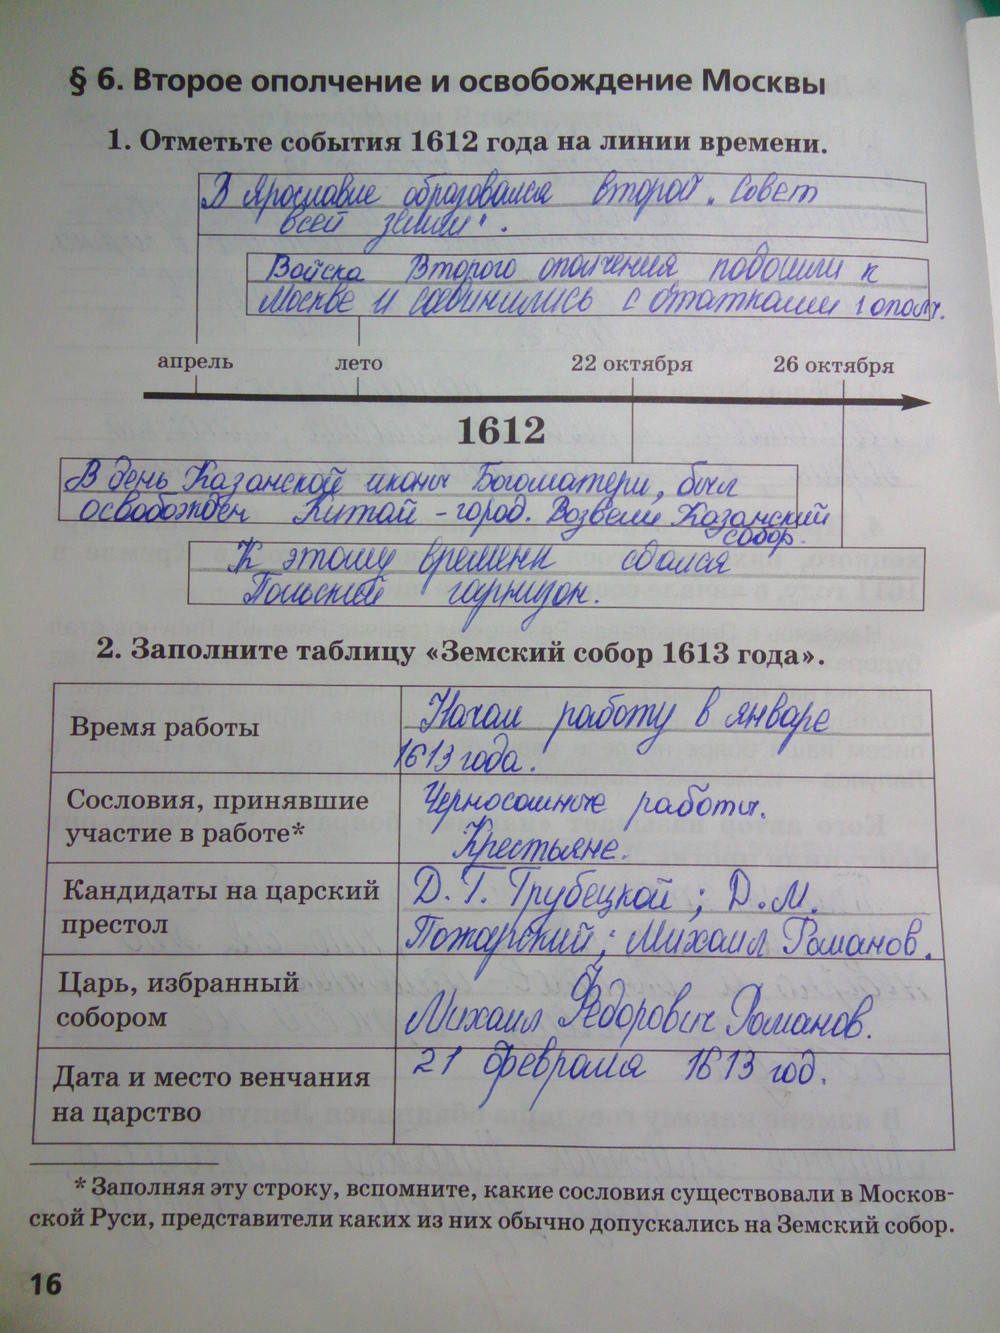 § 6. Второе ополчение и освобождение Москвы
1. Отметьте события 1612 года на линии времени.
В Ярославле образовался второй „Совет
всей земли".
Войска Второго ополчения подошли к
Москве и соединились с остатками 1 ополч.
апрель лето 22 октября 26 октября
1612
В день Казанской иконы Богоматери, был
освобожден Китай-город. Возвели Казанский
собор.
К этому времени сдался
Польский гарнизон.
2. Заполните таблицу «Земский собор 1613 года».
Время работы
Начал работу в январе
1613 года.
Сословия, принявшие
участие в работе*
Черносошные работы.
Крестьяне.
Кандидаты на царский
престол
Д. Т. Трубецкой; Д. М.
Пожарский; Михаил Романов.
Царь, избранный
собором
Михаил Федорович Романов.
Дата и место венчания
на царство
21 февраля 1613 год.
* Заполняя эту строку, вспомните, какие сословия существовали в Москов-
ской Руси, представители каких из них обычно допускались на Земский собор.
16